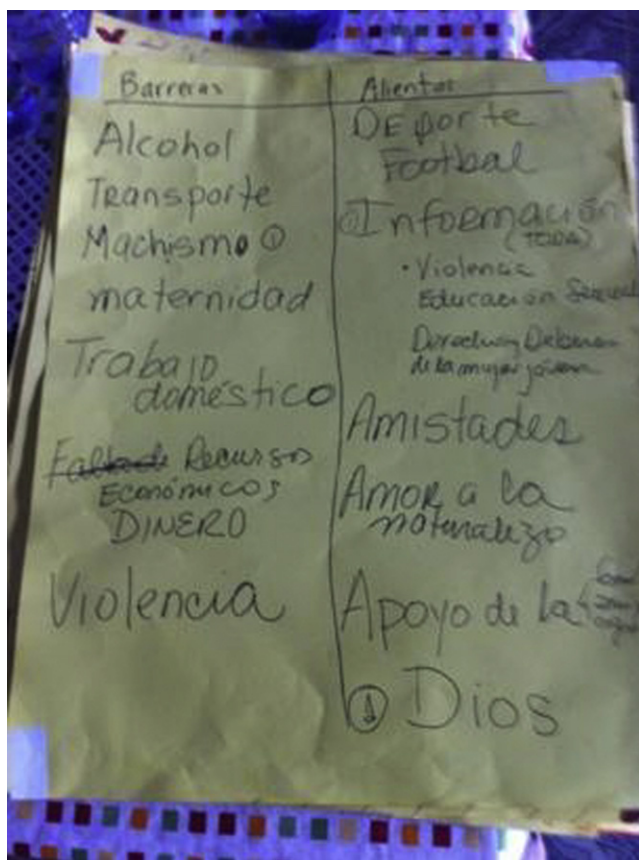 Barreras
Alcohol
Transporte
Machismo ①
maternidad
Trabajo
doméstico
Recursos
Económicos
DINERO
Violencia
Alientos
DEporte
Footbal
Información
(TODA)
• Violencia
Educación Sexual
Derechos y Deberes
de la mujer jóven
Amistades
Amor a la
naturaleza
Apoyo de la
① Dios